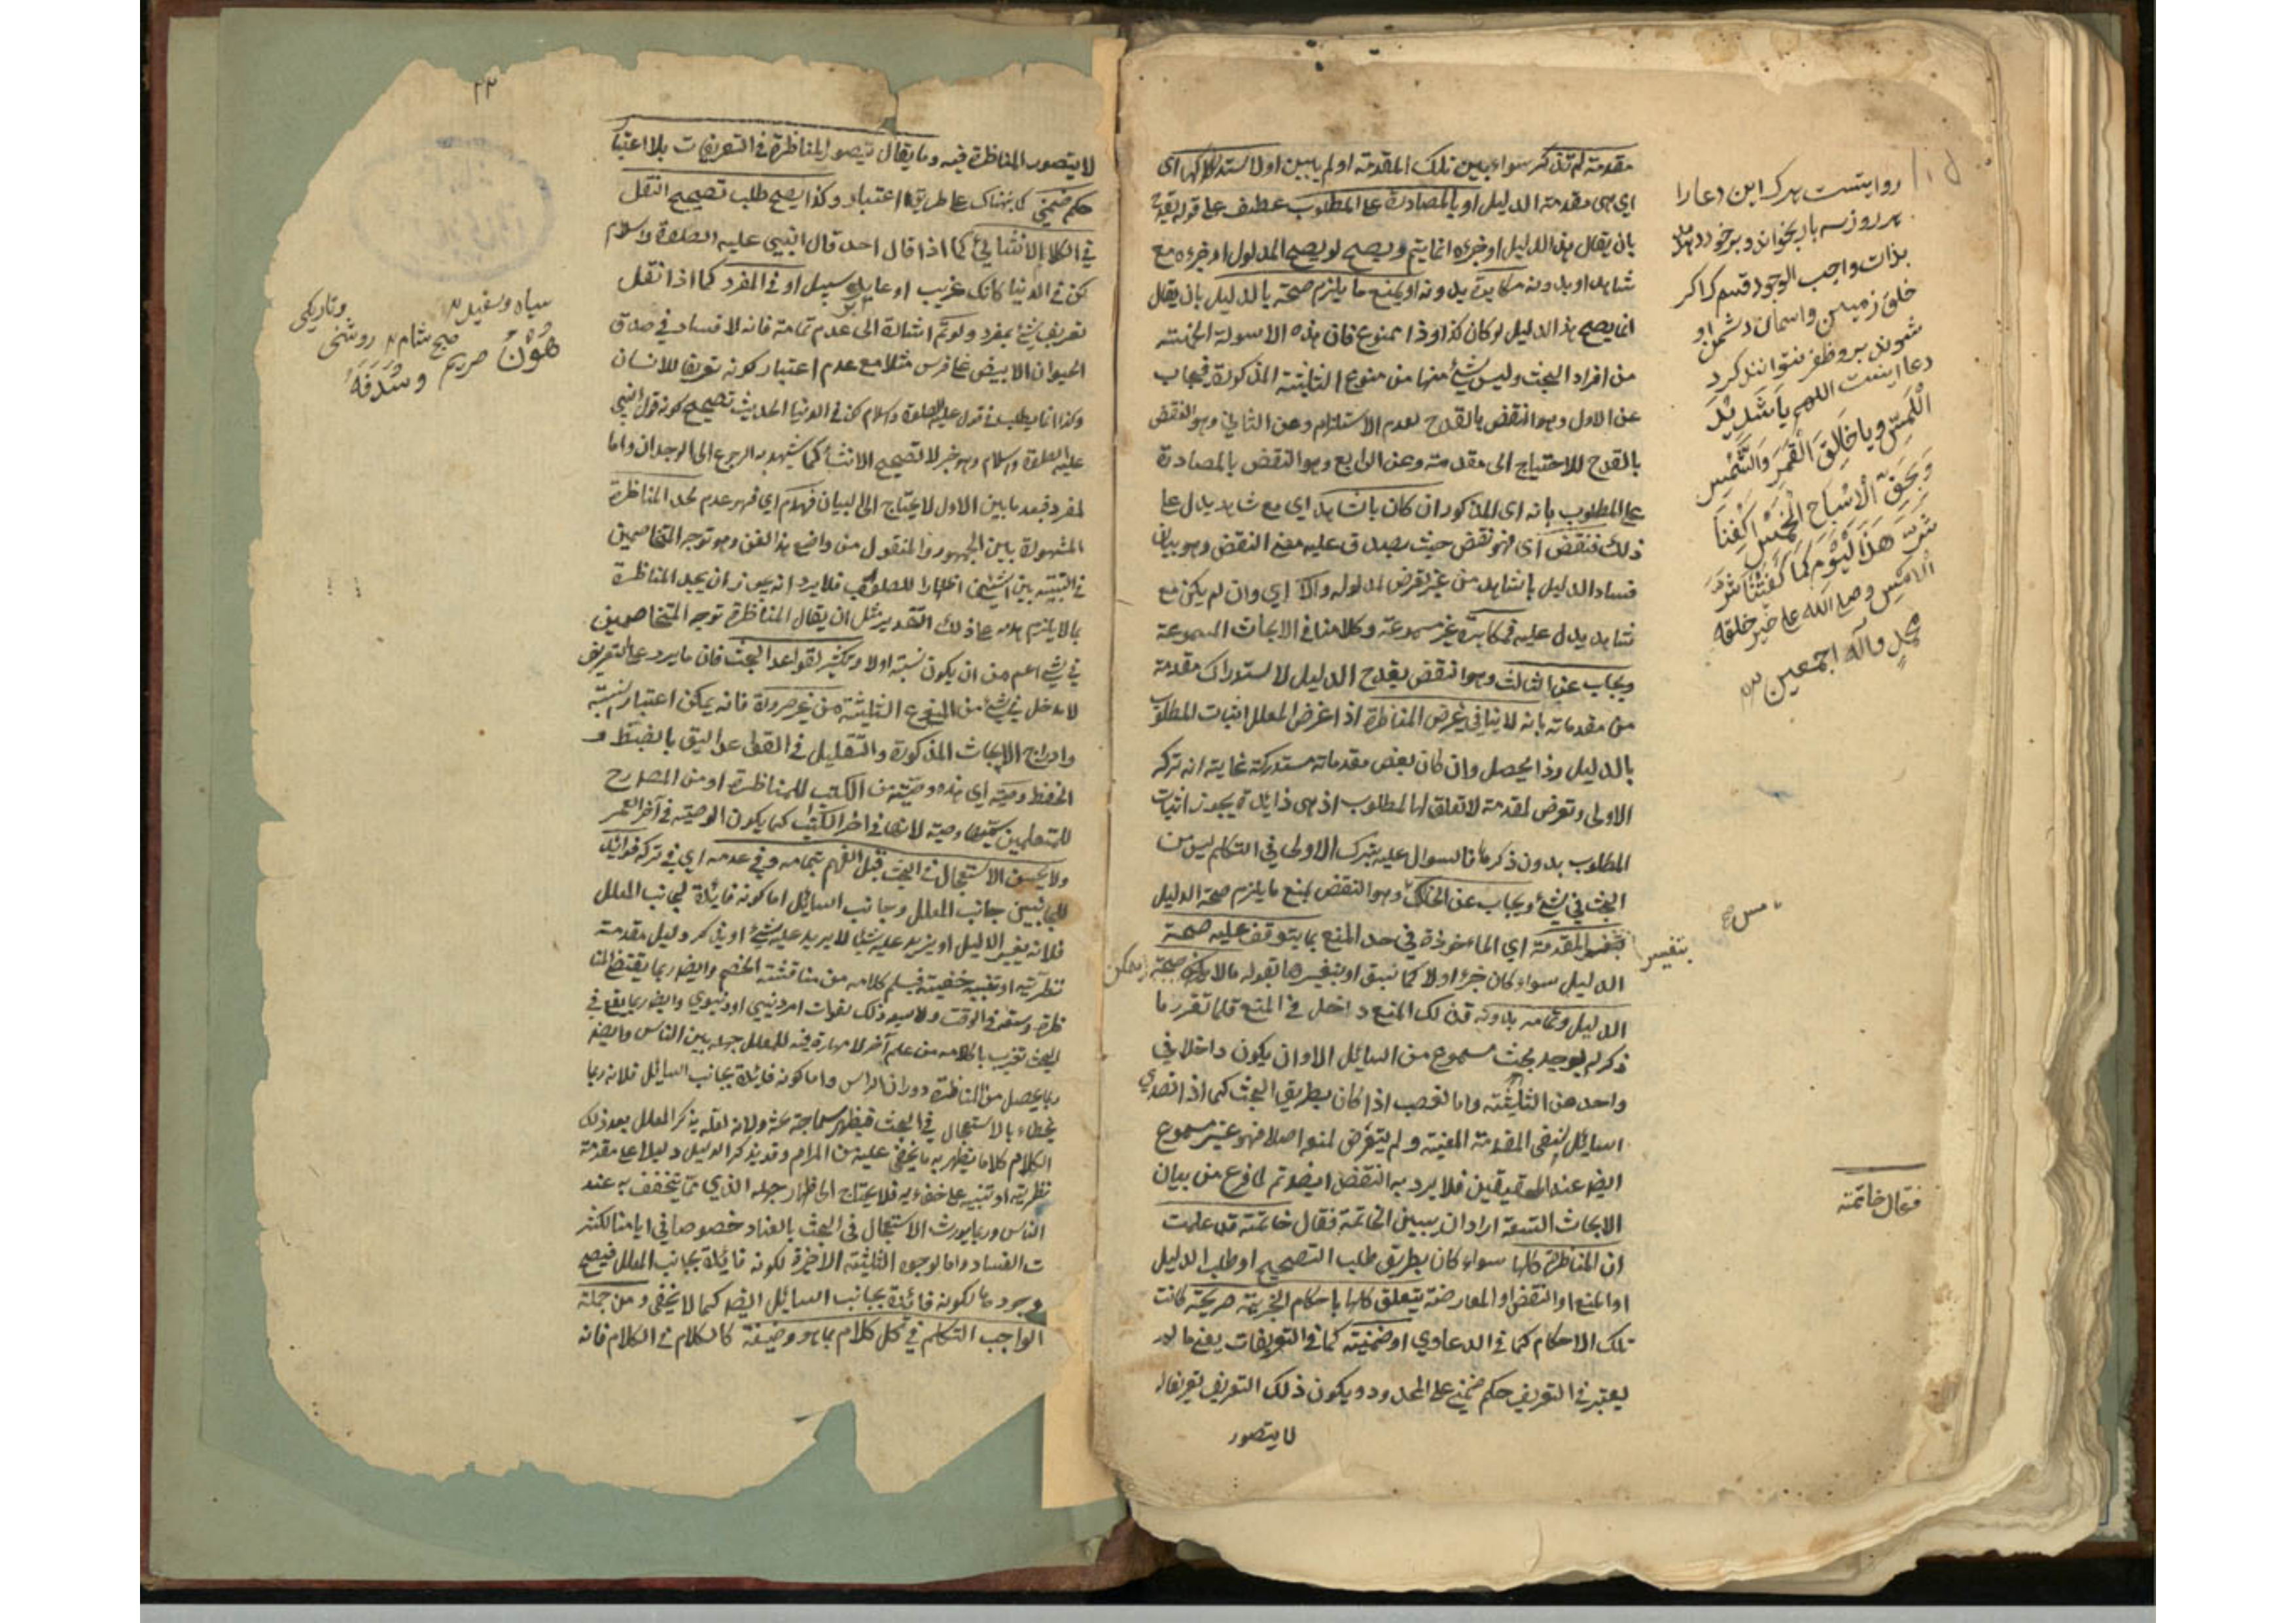 مقدمة لم تذكر سواء بين تلك المقدمة او لم يبين اولا ستدراكها اى
اى هى مقدمة الدليل او بالمصادرة على المطلوب عطف على قوله بقدح
بان يقال هذا الدليل او جزءه انما يتم ويصح لو يصح المدلول او جزءه مع
شاهد او بدونه مكابرة بدونه او يمنع ما يلزم صحة بالدليل بان يقال
انما يصح هذا الدليل لو كان كذا وذا ممنوع فان هذه الاسولة الخمسة
من افراد البحث وليس شئ منها من منوع الثلثة المذكورة فيجاب
عن الاول وهو النقض بالقدح لعدم الاستلزام وعن الثانى وهو النقض
بالقدح للاحتياج الى مقدمة وعن الرابع وهو النقض بالمصادرة
على المطلوب بانه اى المذكور ان كان بشاهد اى مع شاهد يدل على
ذلك فنقض اى فهو نقض حيث يصدق عليه معنى النقض وهو بيان
فساد الدليل بشاهد من غير تعرض لمدلوله والا اى وان لم يكن مع
شاهد يدل عليه فمكابرة غير مسموعة وكلامنا فى الابحاث المسموعة
ويجاب عن الثالث وهو النقض بقدح الدليل لاستدراك مقدمة
من مقدماته بانه لا ينافى غرض المناظرة اذ غرض المعلل اثبات المطلوب
بالدليل وذا يحصل وان كان بعض مقدماته مستدركة غايته انه ترك
الاولى وتعرض لمقدمة لا تعلق لها لمطلوب اذ هى ذايدة يجوز اثبات
المطلوب بدون ذكرها فالسوال عليه بترك الاولى فى التكلم ليس من
البحث فى شئ ويجاب عن الخامس وهو النقض بمنع ما يلزم صحة الدليل
المقدمة اى الماخوذة فى حد المنع بما يتوقف عليه صحة
الدليل سواء كان جزءا اولا كما سبق او بتفسيرها بقوله مالا يمكن صحة
الدليل وتمامه بدونه فذلك المنع داخل فى المنع فلما تقرر ما
ذكر لم يوجد بحث مسموع من السائل الا وان يكون داخلا فى
واحد من الثلثة واما الغصب اذا كان بطريق البحث كما اذا تصدى
السائل لنفى المقدمة المعينة ولم يتعرض لمنع اصلا فهو غير مسموع
ايضا عند المحققين فلا يرد به النقض ايضا ثم لما فرغ من بيان
الابحاث التسعة اراد ان يبين الخاتمة فقال خاتمة قد علمت
ان المناظرة كلها سواء كان بطريق طلب التصحيح او طلب الدليل
او المنع او النقض او المعارضة يتعلق كلها باحكام الخبرية صريحة كانت
تلك الاحكام كما فى الدعاوى او ضمنية كما فى التعريفات يعنى ما لم
يعتبر فى التعريف حكم ضمنى على المحدود ويكون ذلك التعريف تعريفا له
لا يتصور
روايتست هركه اين دعا را
هر روز سه بار بخواند و بر خود دمد
بذات واجب الوجود قسم كه اكر
خلق زمين و اسمان دشمن او
شوند برو ظفر نتوانند كرد
دعا اينست اللهم يا شديد
اللمس ويا خالق القمر والشمس
وبحق الاشباح الخمس اكفنا
شر هذا اليوم كما كفيتنا شر
الامس وصلى الله على خير خلقه
محمد وآله اجمعين
بتفسير
يمكن
فقال خاتمة
لا يتصور المناظرة فيه وما يقال يتصور المناظرة فى التعريفات بلا اعتبار
حكم ضمنى كما هناك على طريق اعتبار وكذا يصح طلب تصحيح النقل
فى الكلام الانشائى كما اذا قال احد قال النبى عليه الصلوة والسلام
كن فى الدنيا كانك غريب او عابر سبيل او فى المفرد كما اذا نقل
تعريف شئ بمفرد ولو تم اشارة الى عدم تمامه فانه لا فساد فى صدق
الحيوان الابيض على فرس مثلا مع عدم اعتبار كونه تعريفا للانسان
وكذا انما يطلب فى قول عليه الصلوة والسلام كن فى الدنيا الحديث تصحيح كونه قول النبى
عليه الصلوة والسلام وهو خبر لا تصحيح الانشاء كما يشهد به الرجوع الى الوجدان واما
المفرد فبعد ما بين الاول لا يحتاج الى البيان فهدم اى فهو عدم لحد المناظرة
المشهورة بين الجمهور والمنقول من واضع هذا الفن وهو توجه المتخاصمين
فى النسبة بين الشيئين اظهارا للصواب فلا يرد انه يجوز ان يحد المناظرة
بما لا يلزم هدمه على ذلك التقدير مثل ان يقال المناظرة توجه المتخاصمين
فى شئ اعم من ان يكون نسبة اولا وتكثير لقواعد البحث فان ما يرد على التعريف
لا يدخل فى شئ من المنوع الثلثة من غير ضرورة فانه يمكن اعتبار نسبة
وادراج الابحاث المذكورة والتقليل فى القواعد اليق بالضبط و
الحفظ وصية اى هذه وصية من الكتب للمناظرة او من المصارح
للمتعلمين سميتها وصية لانها فى اخر الكتب كما يكون الوصية فى آخر العمر
ولا يحسن الاستعجال فى البحث قبل الفهم بتمامه وفى عدمه اى فى تركه فوائد
للجانبين جانب المعلل وجانب السائل اما كونه فائدة لجانب المعلل
فلانه يغير الدليل او يزيد عليه شيئا لا يرد عليه شئ او يذكر دليل مقدمة
نظرية او تنبيه خفية فيسلم كلامه من مناقشة الخصم وايضا ربما يقتضى المنا
ظرة وسعة فى الوقت ولاسيما وذلك بفوات امر دينى او دنيوى وايضا ربما يقع فى
البحث تقريب بكلامه من علم آخر لا مهارة فيه للمعلل جهله بين الناس وايضا
ربما يحصل من المناظرة دوران الراس واما كونه فائدة بجانب السائل فلانه ربما
يخطاء بالاستعجال فى البحث فيظهر سماجة بحثه ولانه لعله يذكر المعلل بعد ذلك
الكلام كلاما يظهر به ما يخفى عليه من المرام وقد يذكر الدليل دليلا على مقدمة
نظرية او تنبيه على خفاء به فلا يحتاج الى اظهار جهله الذى مما يتخفف به عند
الناس وربما يورث الاستعجال فى البحث بالعناد خصوصا فى ايامنا لكثر
ت الفساد واما لوجوه الثلثة الاخيرة لكونه فائدة بجانب المعلل فيصح
وجودها لكونه فائدة بجانب السائل ايضا كما لا يخفى ومن جملة
الواجب التكلم فى كل كلام بما هو وضيفة كالكلام فى الكلام فانه
سياه وسفيد
صبح شام روشنى وتاريكى
هون صريم وسدفه